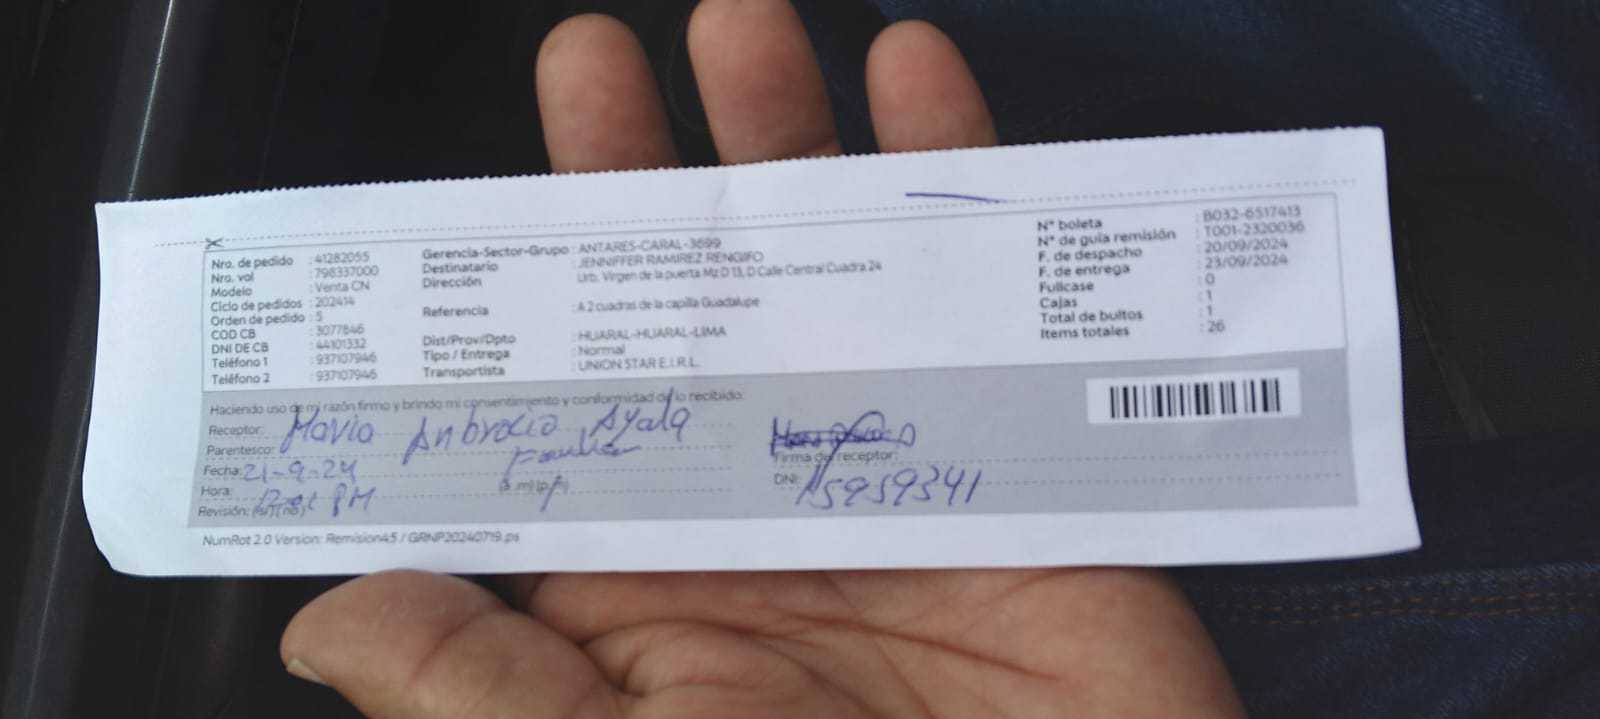 Nro. de pedido : 41282055
Nro. vol : 798337000
Modelo : Venta CN
Ciclo de pedidos : 202414
Orden de pedido : 5
COD CB : 3077846
DNI DE CB : 44101332
Teléfono 1 : 937107946
Teléfono 2 : 937107946
Gerencia-Sector-Grupo : ANTARES-CARAL-3699
Destinatario : JENNIFFER RAMIREZ RENGIFO
Dirección : Urb. Virgen de la puerta Mz D 13, D Calle Central Cuadra 24
Referencia : A 2 cuadras de la capilla Guadalupe
Dist/Prov/Dpto : HUARAL-HUARAL-LIMA
Tipo / Entrega : Normal
Transportista : UNION STAR E.I.R.L.
N° boleta : B032-6517413
N° de guía remisión : T001-2320036
F. de despacho : 20/09/2024
F. de entrega : 23/09/2024
Fullcase : 0
Cajas : 1
Total de bultos : 1
Items totales : 26
Haciendo uso de mi razón firmo y brindo mi consentimiento y conformidad de lo recibido:
Receptor: Maria Ambrocio Ayala
Parentesco:
Fecha: 21-9-24
Hora: PM (a .m) (p.m)
Revisión: (si) (no)
Firma del receptor:
DNI: 15959341
NumRot 2.0 Version: Remision45 / GRNP20240719.ps